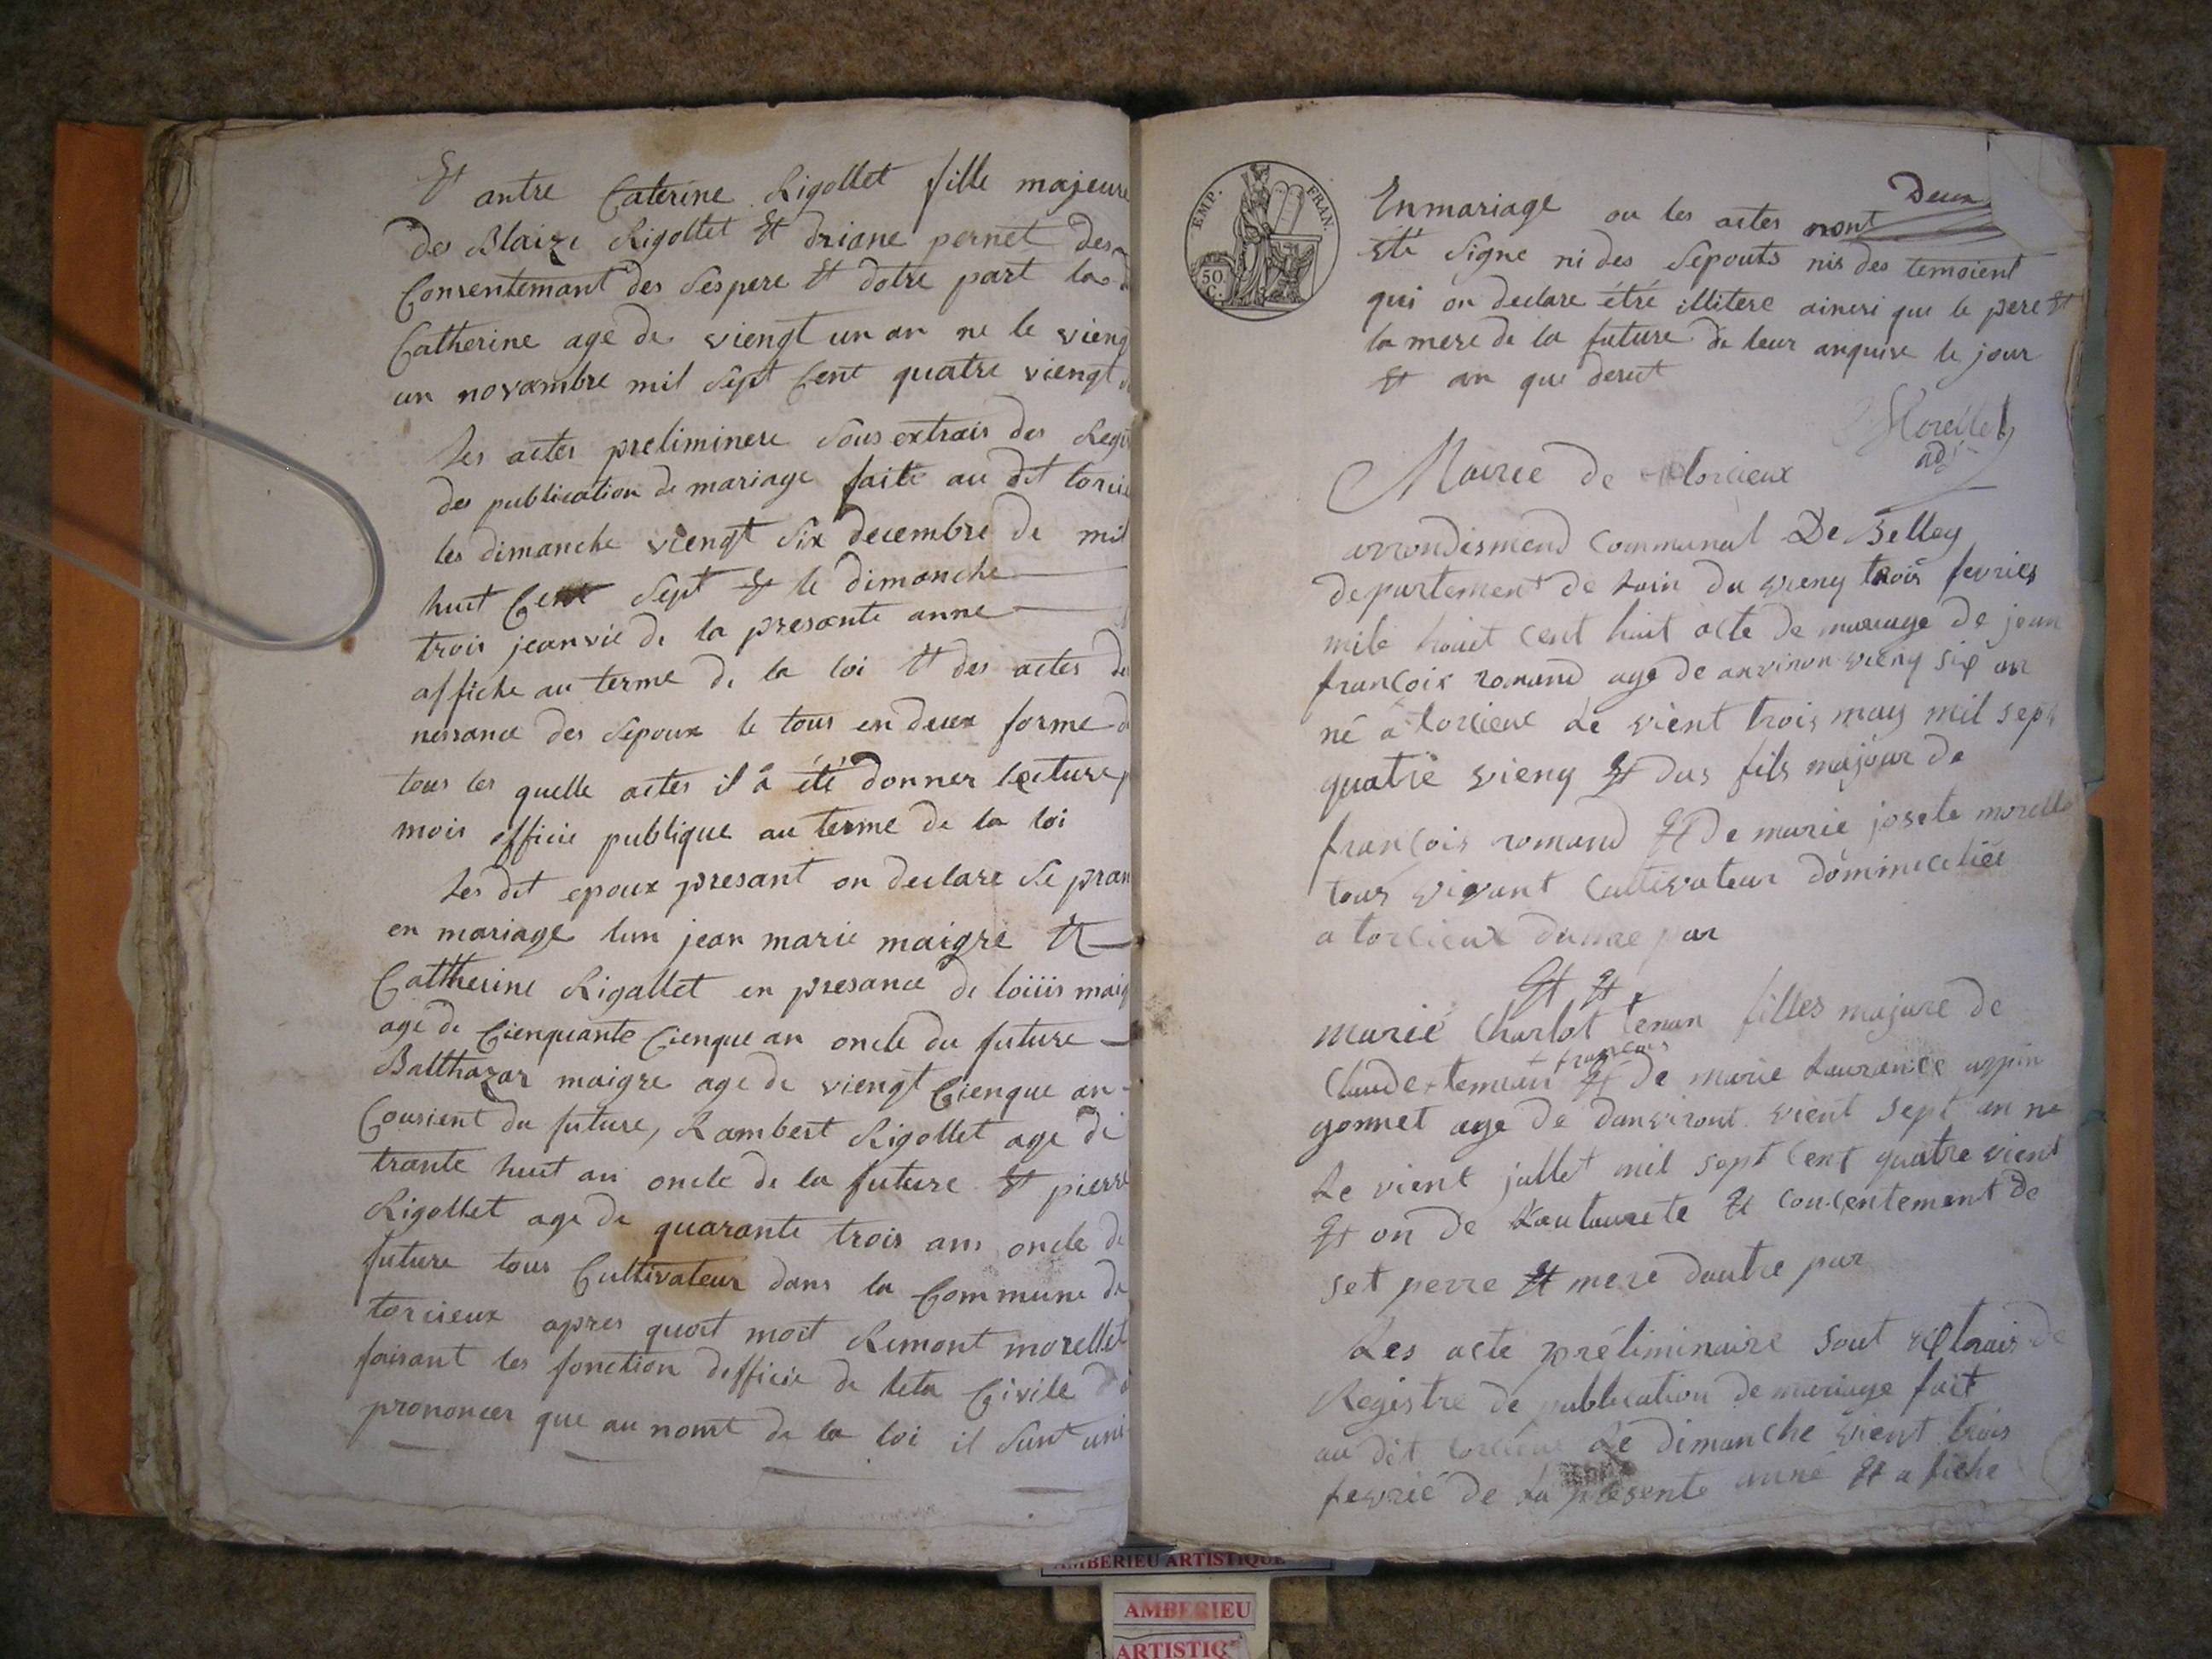 Et antre Caterine Rigollet fille majeure
de Blaize Rigollet Et driane pernet des
Consentemant des Sespere Et dotre part la
Catherine age de viengt un an ne le vieng
un novambre mil Sept Cent quatre viengt
les actes preliminere Sous extrais des Regis
des publication de mariage faite au dit torcie
les dimanche viengt Six decembre de mil
huit Cent Sept Et le dimanche
trois jeanvie de la presante anne
affiche au terme de la loi Et des actes de
nessance des Sepoux le tous en deux forme d
tous les quelle actes il á été donner lecture p
mois officie publique au terme de la loi
Les dit epoux presant on declare Se pran
en mariage lun jean marie maigre Et
Cattherine Rigallet en presance de loüis maig
age de Cienquante Cienque an oncle du future
Balthazar maigre age de viengt Cienque an
Cousient du future, Rambert Rigollet age de
trante huit an oncle de la future Et pierre
Rigollet age de quarante trois ans oncle de
future tous Cultivateur dans la Commune de
torcieux apres quoit moit Remont morellet
faisant les fonction defficie de leta Civile
prononcer que au nomt de la loi il Sunt uni
EMP. FRAN.
50 C.
Deux
Enmariage ou les actes nont
été Signe ni des Sepouts nis des temoient
qui on declare étré illitere ainesi que le pere Et
la mere de la future de leur anquise le jour
Et an que desut
Morellet
adj
Mairee de torcieux
arrondismend Communal De Belley
departement de lain du vieng trois fevrier
mile houit cent huit acte de mariage de jean
françois romand age de anviron vieng six an
né á torcieux Le vient trois may mil sept
quatre vieng Et dus fils majour de
françois romand Et De marie josete morellet
tous vivant Cultivateur domméciliée
a torcieux dunne par
Et Et
marie Charlot tenan filles majure de
+ francois
Claude + tennan Et De marie Laurance arpin
gonnet age de danviront vient sept an ne
Le vient jullet mil sept Cent quatre vient
Et on de Lautaurete Et concentement de
set perre Et mere dautre par
Les acte préliminaire sout extrais de
Registre de publication de mariage fait
au dit torcieux Le dimanche vient trois
fevrié de La présente anné Et a fiche
AMBERIEU ARTISTIQUE
AMBERIEU
ARTISTIQ